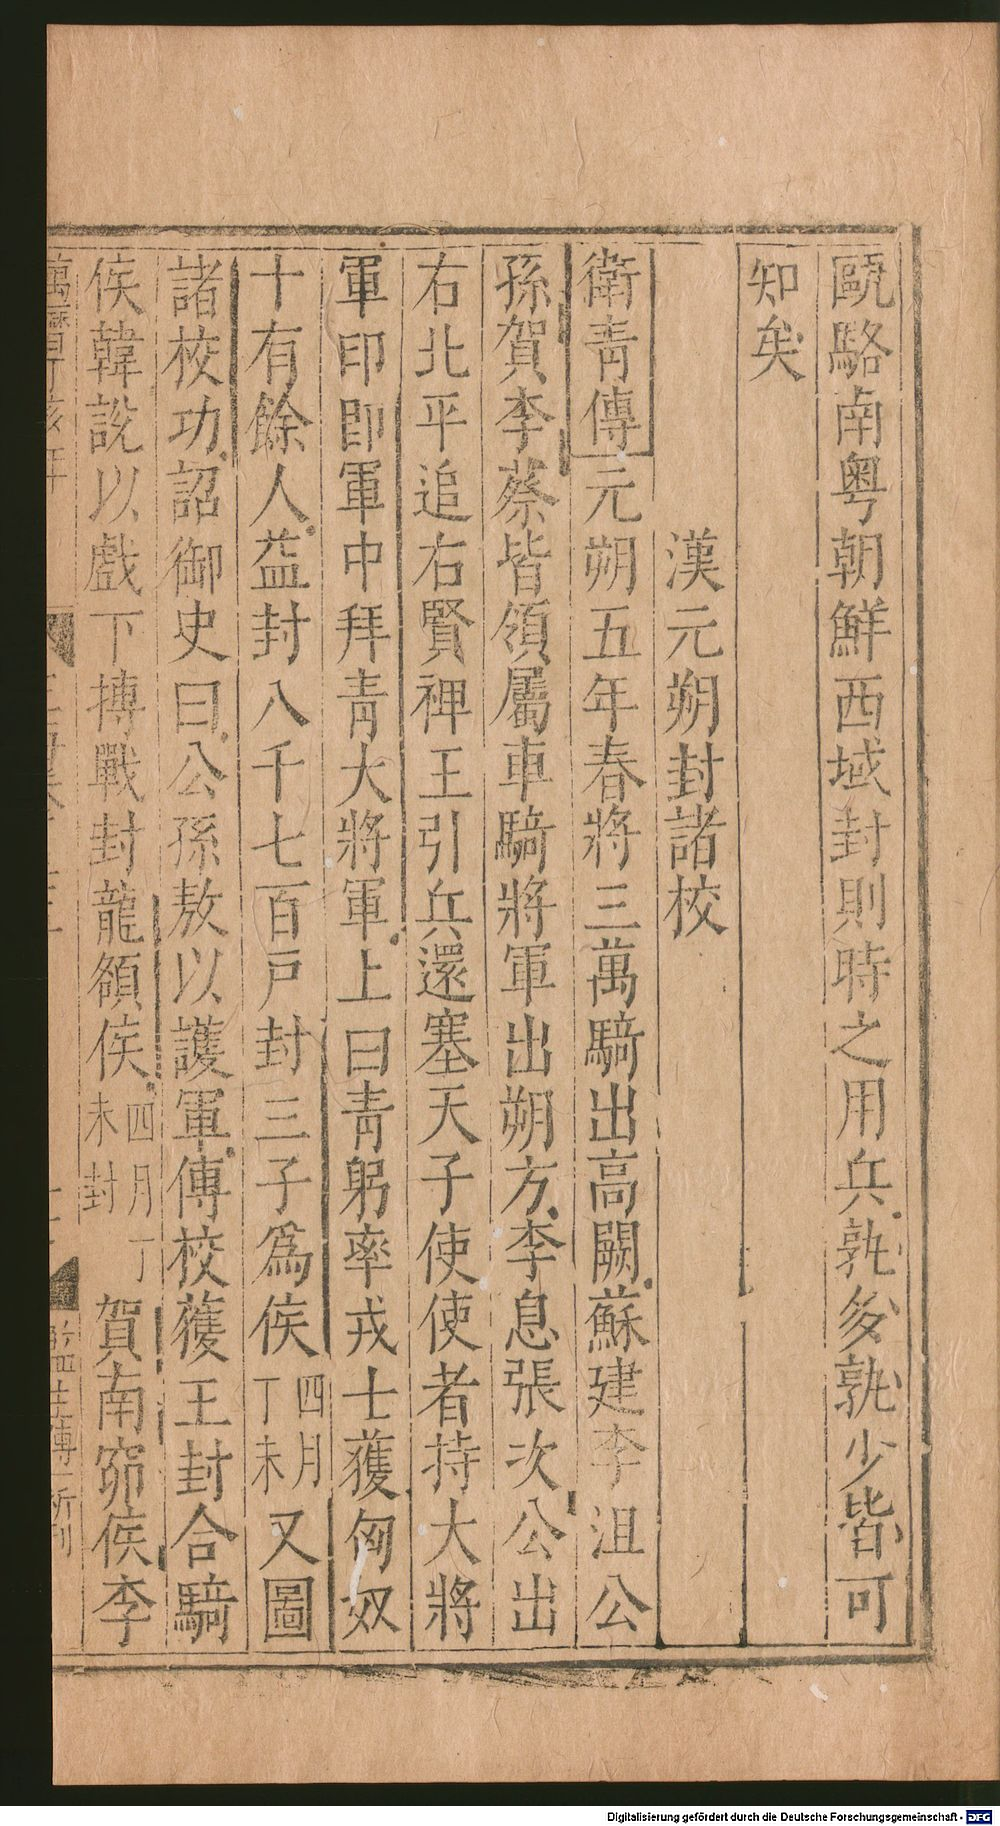 甌駱南粤朝鮮西域封則時之用兵孰多孰少皆可
知矣
漢元朔封諸校
衛青傳元朔五年春將三萬騎出高闕蘇建李沮公
孫賀李蔡皆領屬車騎將軍出朔方李息張次公出
右北平追右賢裨王引兵還塞天子使使者持大將
軍印即軍中拜青大將軍上曰青躬率戎士獲匈奴
十有餘人益封八千七百戶封三子為侯四月丁未又圖
諸校功詔御史曰公孫敖以護軍傅校獲王封合騎
侯韓說以戲下搏戰封龍頟侯四月丁未封賀南窌侯李
Digitalisierung gefördert durch die Deutsche Forschungsgemeinschaft - DFG